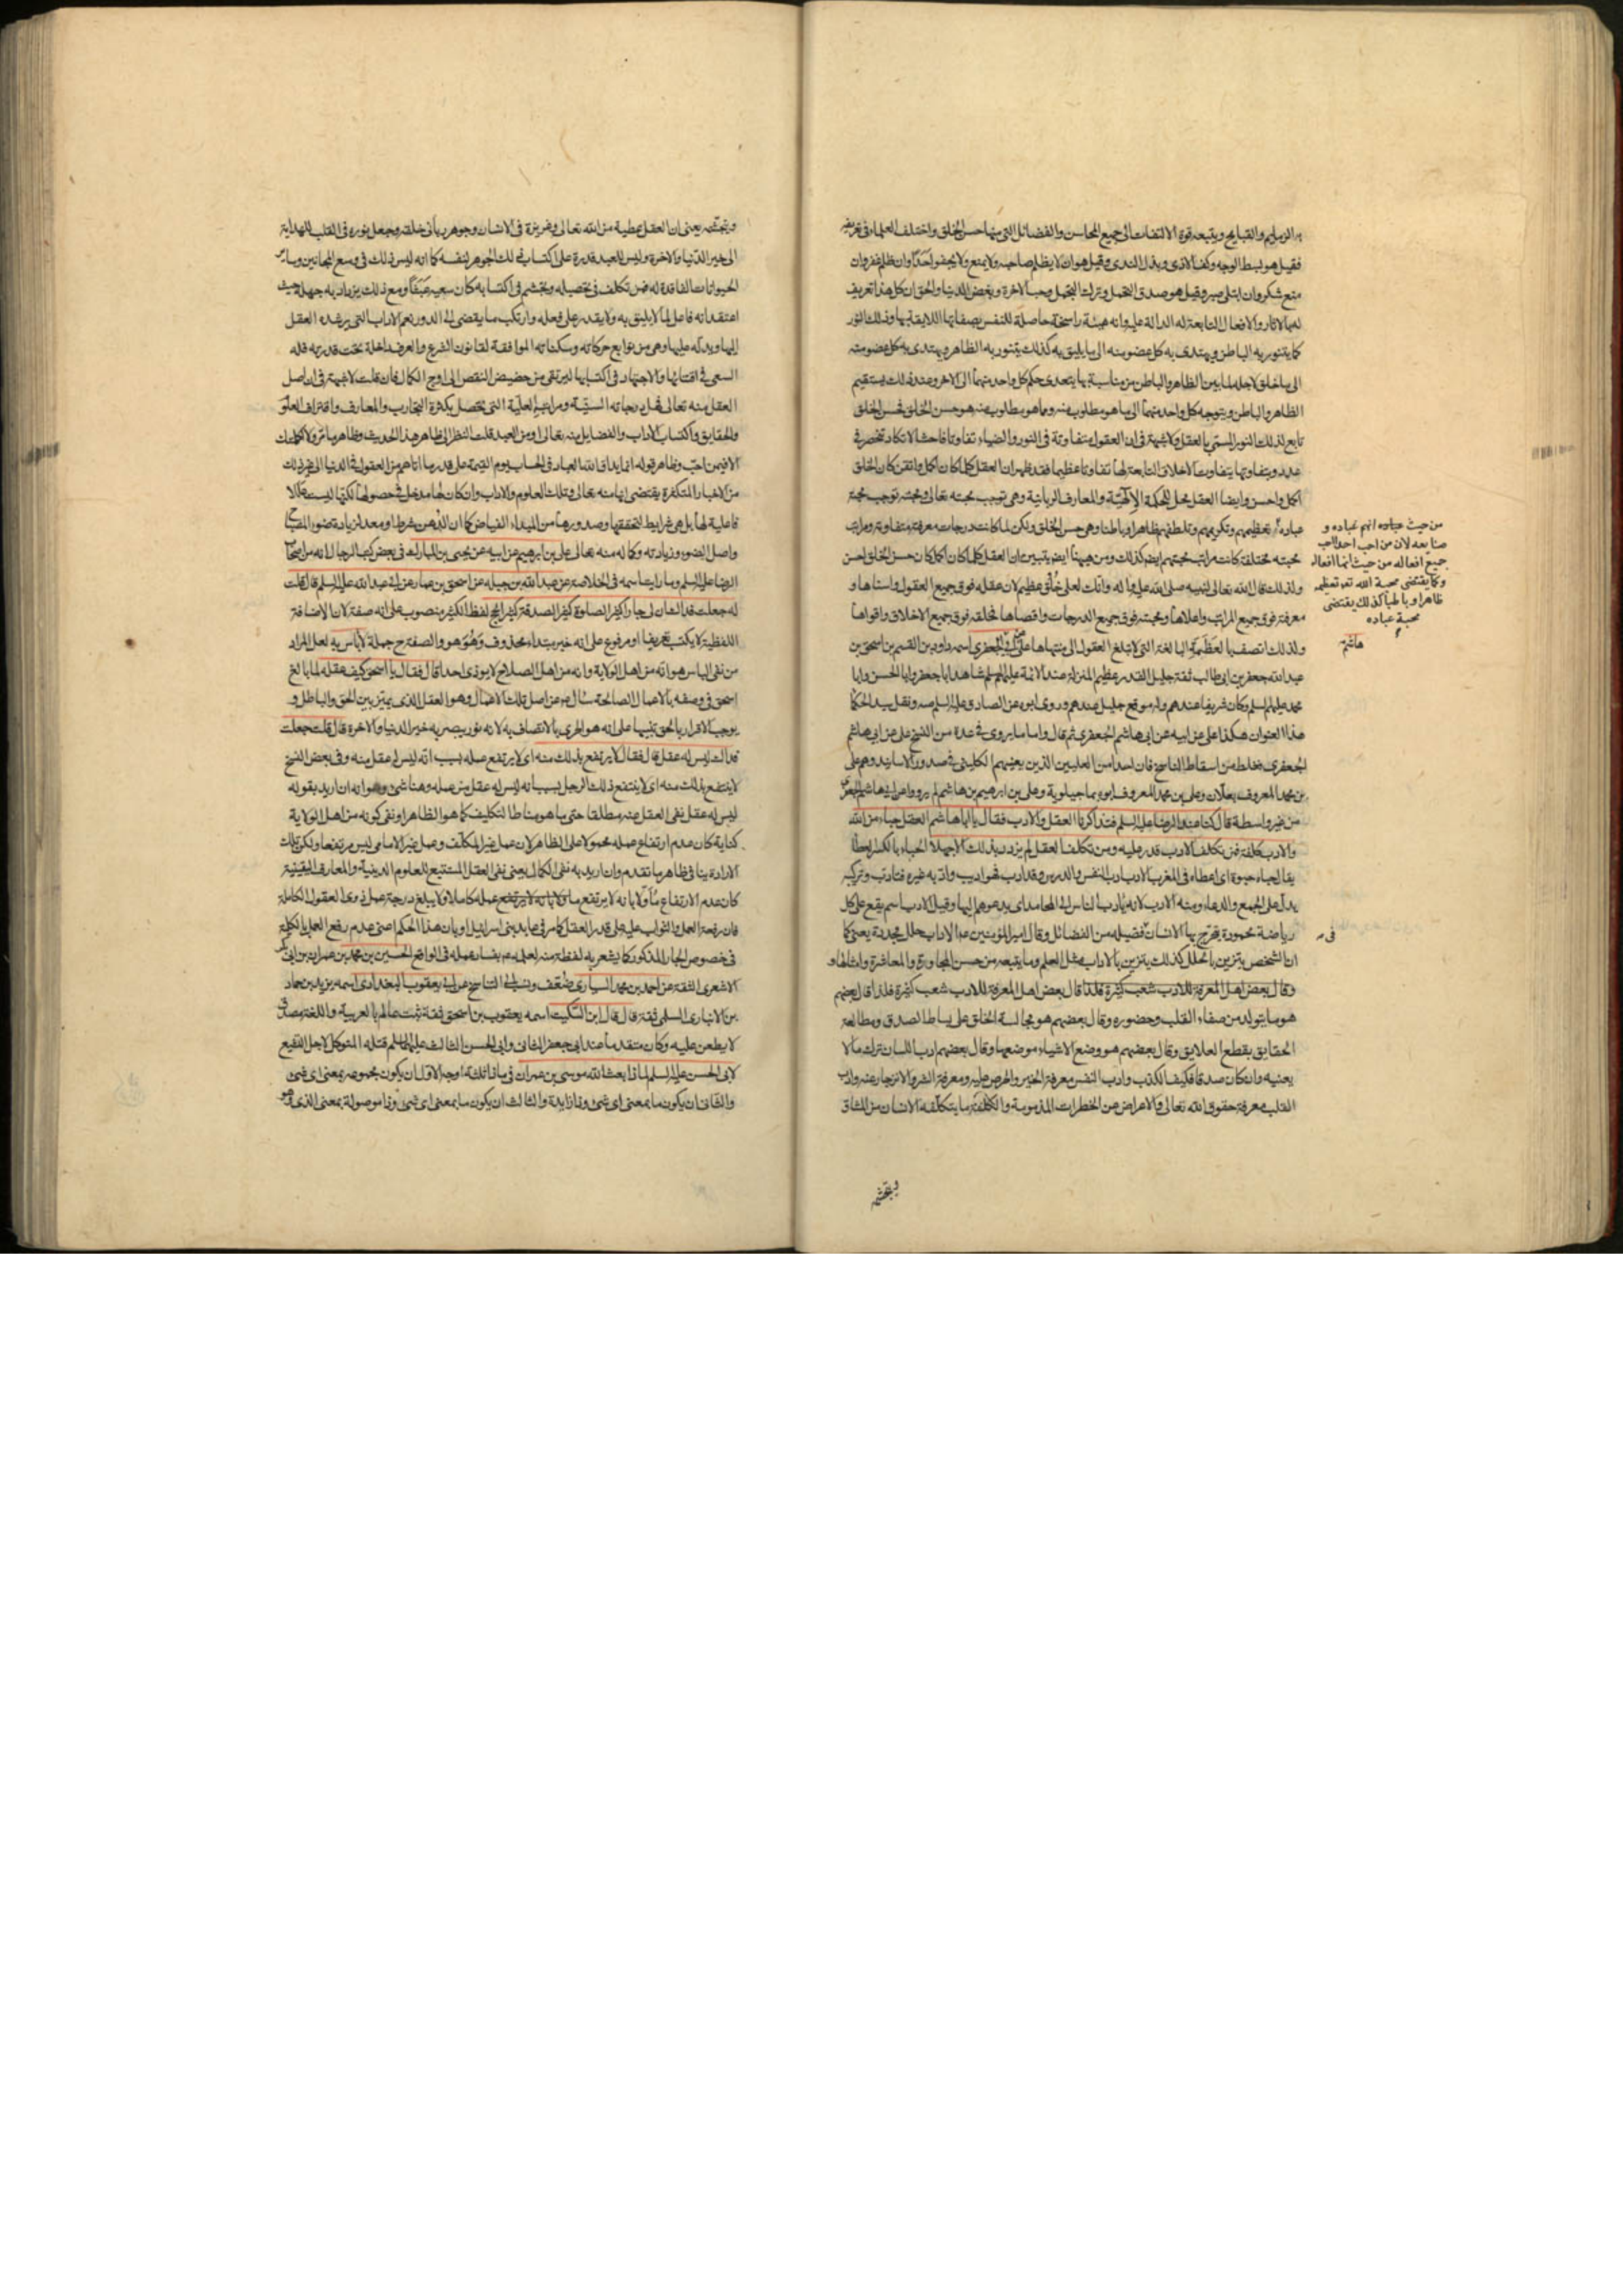 الرذايم والقبايح ويتبعه قوة الالتفات الى جميع المحاسن والفضائل التى منها حسن الخلق واختلف العلماء فى تعريفه
فقيل هو بسط الوجه وكف الاذى وبذل الندى وقيل هو ان لا يظلم صاحبه ولا يمنع ولا يجفو احدا وان ظلم غفر وان
منع شكر وان ابتلى صبر وقيل هو صدق التحمل وترك التجمل وحب الاخرة وبغض الدنيا والحق ان كل هذا تعريف
له بالاثار والافعال التابعة له الدالة عليه وانه هيئة راسخة حاصلة للنفس بصفاتها اللايقة بها وذلك النور
كما يتنور به الباطن ويهتدى به كل عضو منه الى ما يليق به كذلك يتنور به الظاهر ويهتدى به كل عضو منه
الى ما خلق لاجله لما بين الظاهر والباطن من مناسبة بها يتعدى حكم كل واحد منهما الى الاخر وعند ذلك يستقيم
الظاهر والباطن ويتوجه كل واحد منهما الى ما هو مطلوب منه وما هو مطلوب منه هو حسن الخلق فحسن الخلق
تابع لذلك النور المسمى بالعقل ولا شبهة فى ان العقول متفاوتة فى النور والضياء تفاوتا فاحشا لا تكاد تنحصر فى
عدد وبتفاوتها يتفاوت الاخلاق التابعة لها تفاوتا عظيما فقد ظهر ان العقل كلما كان اكمل واتقن كان الخلق
اكمل واحسن وايضا العقل محل للحكمة الالهية والمعارف الربانية وهى توجب محبته تعالى ومحبته توجب محبة
عباده وتعظيمهم وتكريمهم وتلطفهم ظاهرا وباطنا وهى حسن الخلق ولكن لما كانت درجات معرفته متفاوتة ومراتب
محبته مختلفة كانت مراتب محبتهم ايضا كذلك ومن ههنا ايضا يتبين ان العقل كلما كان اكمل كان حسن الخلق احسن
ولذلك قال الله تعالى لنبيه صلى الله عليه واله وانك لعلى خلق عظيم لان عقله فوق جميع العقول واسناها و
معرفته فوق جميع المراتب واعلاها ومحبته فوق جميع الدرجات واقصاها فخلقه فوق جميع الاخلاق واقواها
ولذلك اتصف بالعظمة البالغة التى لا تبلغ العقول الى منتهاها على عن ابى هاشم الجعفرى اسمه داود بن القسم بن اسحق بن
عبد الله جعفر بن ابى طالب ثقة جليل القدر عظيم المنزلة عند الائمة عليهم السلم شاهد ابا جعفر وابا الحسن وابا
محمد عليهم السلم وكان شريفا عندهم وله موقع جليل عندهم وروى ابوه عن الصادق عليه السلم ونقل سيد الحكماء
هذا العنوان هكذا على عن ابيه عن ابى هاشم الجعفرى ثم قال واما ما يروى فى عدة من النسخ على عن ابى هاشم
الجعفرى فغلط من اسقاط الناسخ فان احدا من العليين الذين يعنيهم الكلينى فى صدور الاسانيد وهم على
بن محمد المعروف بعلان وعلى بن محمد المعروف ابوه بماجيلويه وعلى بن ابراهيم بن هاشم لم يرووا عن ابى هاشم الجعفرى
من غير واسطة قال كنا عند الرضا عليه السلم فتذاكرنا العقل والادب فقال يا ابا هاشم العقل حباء من الله
والادب كلفة فمن تكلف الادب قدر عليه ومن تكلف العقل لم يزدد بذلك الا جهلا الحباء بالكسر العطا
يقال حباه حبوة اى اعطاه فى المغرب الادب ادب النفس والدرس وقد ادب فهو اديب وادبه غيره فتادب وتركيبه
يدل على الجمع والدعاء ومنه الادب لانه يادب الناس الى المحامد اى يدعوهم اليها وقيل الادب اسم يقع على كل
رياضة محمودة يخرج بها الانسان فضيلة من الفضائل وقال امير المؤمنين ع الاداب حلل مجددة يعنى كما
ان الشخص يتزين بالحلل كذلك يتزين بالاداب مثل العلم وما يتبعه من حسن المجاورة والمعاشرة وامثالها و
وقال بعض اهل المعرفة للادب شعب كثيرة فلذا قال بعض اهل المعرفة للادب شعب كثيرة فلذا قال بعضهم
هو ما يتولد من صفاء القلب وحضوره وقال بعضهم هو مجالسة الخلق على بساط الصدق ومطالعة
الحقايق بقطع العلايق وقال بعضهم هو وضع الاشياء موضعها وقال بعضهم ادب اللسان ترك ما لا
يعنيه وان كان صدقا فكيف الكذب وادب النفس معرفة الخير والحرص عليه ومعرفة الشر والانزجار عنه وادب
القلب معرفة حقوق الله تعالى والاعراض عن الخطرات المذمومة والكلفة ما يتكلفه الانسان من المشاق
من حيث عباده انهم عباده و
صنايعه لان من احب احدا احب
جميع افعاله من حيث انها افعاله
وكما يقتضى محبة الله تعو تعظيمه
ظاهرا وباطنا كذلك يقتضى
محبة عباده
هاشم
فى
ويتجشمه
ويتجشمه يعنى ان العقل عطية من الله تعالى وغريزة فى الانسان وجوهر ربانى خلقه وجعل نوره فى القلب للهداية
الى خير الدنيا والاخرة وليس للعبد قدرة على اكتساب ذلك الجوهر لنفسه كما انه ليس ذلك فى وسع المجانين وساير
الحيوانات الفاقدة له فمن تكلف فى تحصيله وتجشم فى اكتسابه كان سعيه عبثا ومع ذلك يزداد به جهله حيث
اعتقد انه فاعل لما لا يليق به ولا يقدر على فعله وارتكب ما يقضى الى الدور نعم الاداب التى يرشده العقل
اليها ويدله عليها وهى من توابع حركاته وسكناته الموافقة لقانون الشرع والعرف داخلة تحت قدرته فله
السعى فى اقتنائها والاجتهاد فى اكتسابها ليرتقى من حضيض النقص الى اوج الكمال فان قلت لا شبهة فى ان اصل
العقل منه تعالى فهل درجاته السنية ومراتبه العلية التى تحصل بكثرة التجارب والمعارف واقتراف العلوم
والحقايق واكتساب الاداب والفضايل منه تعالى او من العبد قلت النظر الى ظاهر هذا الحديث وظاهر ما مر ولا اكملتك
الا فيمن احب وظاهر قوله انما يداق الله العباد فى الحساب يوم القيمة على قدر ما اتاهم من العقول فى الدنيا الى غير ذلك
من الاخبار المتكثرة يقتضى انها منه تعالى وتلك العلوم والاداب وان كان لها مدخل فى حصولها لكنها ليست عللا
فاعلية لها بل هى شرايط لتحققها وصدورها من المبداء الفياض كما ان الدهن شرط او معد لزيادة ضوء المصباح
واصل الضوء وزيادته وكماله منه تعالى على بن ابرهيم عن ابيه عن يحيى بن المبارك فى بعض كتب الرجال انه من اصحاب
الرضا عليه السلم وما رايت اسمه فى الخلاصة عن عبد الله بن جبلة عن اسحق بن عمار عن ابى عبد الله عليه السلم قال قلت
له جعلت فداك ان لى جارا كثير الصلوة كثير الصدقة كثير الحج لفظ الكثير منصوب على انه صفة لان الاضافة
اللفظية لا يكتسب تعريفا او مرفوع على انه خبر مبتداء محذوف وهو هو والصفة ح جملة لا باس به لعل المراد
من نفى الباس هو انه من اهل الولاية وانه من اهل الصلاح لا يوذى احدا قال فقال يا اسحق كيف عقله لما بالغ
اسحق فى وصفه بالاعمال الصالحة سال ع عن اصل تلك الاعمال وهو العقل الذى يميز بين الحق والباطل و
يوجب الاقرار بالحق تنبيها على انه هو الحرى بالاتصاف به لانه نور يبصر به خير الدنيا والاخرة قال قلت جعلت
فداك ليس له عقل قال فقال لا يرتفع بذلك منه اى لا يرتفع عمله بسبب انه ليس له عقل منه وفى بعض النسخ
لا ينتفع بذلك منه اى لا ينتفع ذلك الرجل بسبب انه ليس له عقل من عمله وهنا شئ وهو انه ان اريد بقوله
ليس له عقل نفى العقل عنه مطلقا حتى ما هو مناط التكليف كما هو الظاهر او نفى كونه من اهل الولاية
كناية كان عدم ارتفاع عمله محمولا على الظاهر لان عمل غير المكلف وعمل غير الامامى ليس مرتفعا ولكن تلك
الارادة ينافى ظاهر ما تقدم وان اريد به نفى الكمال يعنى نفى العقل المستتبع للعلوم الدينية والمعارف اليقينية
كان عدم الارتفاع ماولا بانه لا يرتفع ماولا بانه لا يرتفع عمله كاملا ولا يبلغ درجة عمل ذوى العقول الكاملة
فان رفعة العمل والثواب عليه على قدر العقل كما مر فى عابد بنى اسرائيل او بان هذا الحكم اعنى عدم رفع العمل بالكلية
فى خصوص الجار المذكور كما يشعر به لفظة منه لعلمه ع بفساد عمله فى الواقع الحسين بن محمد بن عمران بن ابى بكر
الاشعرى الثقة عن احمد بن محمد السيارى ضعيف ونسب الى التناسخ عن ابى يعقوب البغدادى اسمه يزيد بن حماد
بن الانبارى السلمى ثقة قال قال ابن السكيت اسمه يعقوب بن اسحق ثقة ثبت عالم بالعربية واللغة مصدق
لا يطعن عليه وكان متقدما عند ابى جعفر الثانى وابى الحسن الثالث عليهما السلم قتله المتوكل لاجل التشيع
لابى الحسن عليه السلم لماذا بعث الله موسى بن عمران فى ماذا ثلثة اوجه الاول ان يكون مجموعه بمعنى اى شئ
والثانى ان يكون ما بمعنى اى شئ وذا زايدة والثالث ان يكون ما بمعنى اى شئ وذا موصولة بمعنى الذى وهو